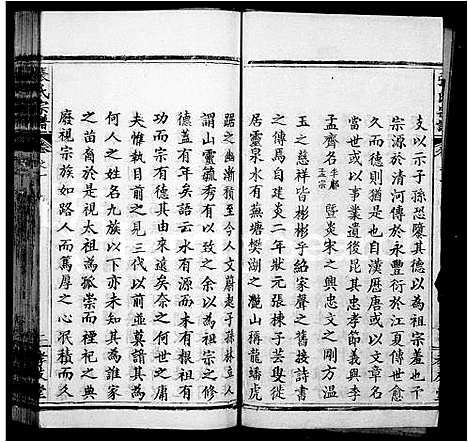 支以示子孫恐隳其德以為祖宗羞也不
宗源於清河傳於永豐衍於江夏傳世愈
久而德則猶自也自漢歷唐或以文章名
當世或以事業遺後昆其忠孝節義與李
孟齊名李郿孟宗暨炎宋之興忠文之剛方
玉之慈祥皆彬彬乎紹家聲之舊接詩書
之傳為自建炎二年狀元張棟子芸叟徙
居靈泉水有燕塘樊湖之瀧山稱龍蟠虎
踞之幽漸積至今人文蔚起子孫林立人
謂山靈毓秀有以致之余以為祖宗之修
德蓋有年矣語云水有源而木有根祖有
功而宗有德其由來遠矣奈之何世之士
夫惟執目前所見三代以前莫譜其為
何人之姓何名九族以下亦未知其為誰家
之苗裔於是視太祖為孤崇而裡祀之典
廢視宗族如路人而篤厚之心泯積而久